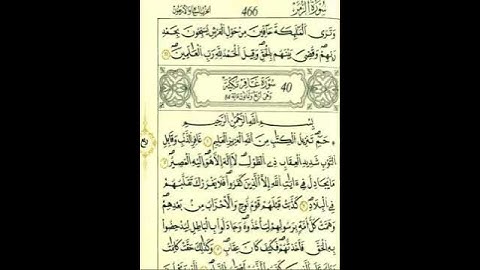 سُورَةُ الزُّمَرِ
466
وَتَرَى الْمَلَٰٓئِكَةَ حَآفِّينَ مِنْ حَوْلِ الْعَرْشِ يُسَبِّحُونَ بِحَمْدِ
رَبِّهِمْ وَقُضِيَ بَيْنَهُم بِالْحَقِّ وَقِيلَ الْحَمْدُ لِلَّهِ رَبِّ الْعَٰلَمِينَ
40 سُورَةُ غَافِرٍ مَكِّيَّة
بِسْمِ اللَّهِ الرَّحْمَٰنِ الرَّحِيمِ
حَمٓ تَنزِيلُ الْكِتَٰبِ مِنَ اللَّهِ الْعَزِيزِ الْعَلِيمِ غَافِرِ الذَّنۢبِ وَقَابِلِ
التَّوْبِ شَدِيدِ الْعِقَابِ ذِي الطَّوْلِ لَآ إِلَٰهَ إِلَّا هُوَ إِلَيْهِ الْمَصِيرُ
مَا يُجَٰدِلُ فِيٓ ءَايَٰتِ اللَّهِ إِلَّا الَّذِينَ كَفَرُوا فَلَا يَغْرُرْكَ تَقَلُّبُهُمْ
فِي الْبِلَٰدِ كَذَّبَتْ قَبْلَهُمْ قَوْمُ نُوحٍ وَالْأَحْزَابُ مِنۢ بَعْدِهِمْ
وَهَمَّتْ كُلُّ أُمَّةٍۭ بِرَسُولِهِمْ لِيَأْخُذُوهُ وَجَٰدَلُوا بِالْبَٰطِلِ لِيُدْحِضُوا
بِهِ الْحَقَّ فَأَخَذتُّهُمْ فَكَيْفَ كَانَ عِقَابِ وَكَذَٰلِكَ حَقَّتْ كَلِمَٰتُ